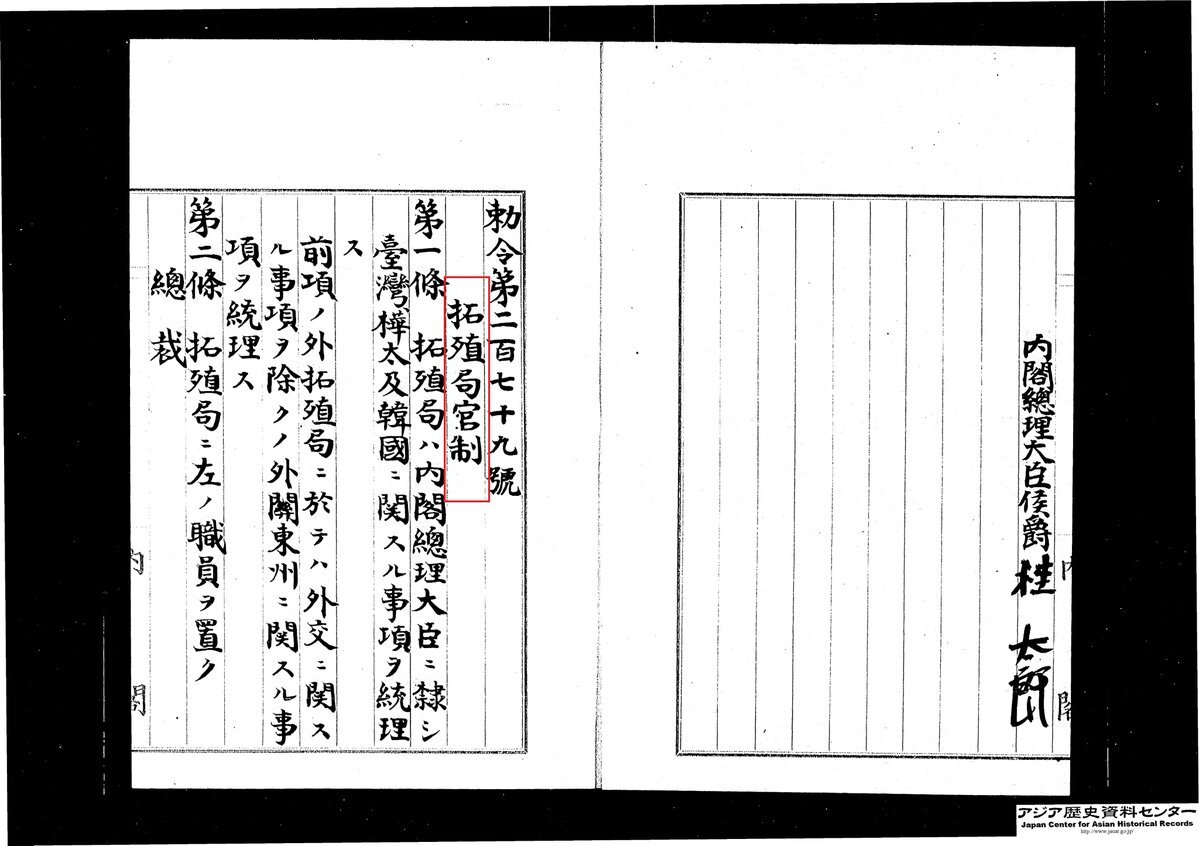 内閣總理大臣侯爵 桂 太郎
内閣
勅令第二百七十九號
拓殖局官制
第一條 拓殖局ハ内閣總理大臣ニ隸シ
臺灣、樺太及韓國ニ関スル事項ヲ統理
ス
前項ノ外拓殖局ニ於テハ外交ニ関ス
ル事項ヲ除クノ外關東州ニ関スル事
項ヲ統理ス
第二條 拓殖局ニ左ノ職員ヲ置ク
總裁
内閣
アジア歴史資料センター
Japan Center for Asian Historical Records
http://www.jacar.go.jp/